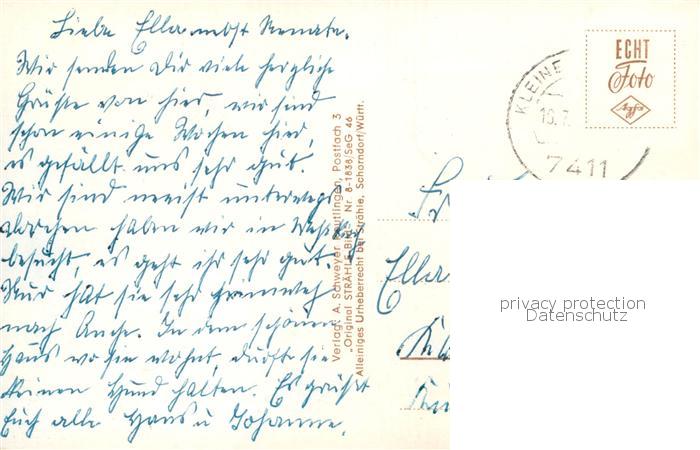 Liebe Ella nebst Renate.
Wir senden Dir viele herzliche
Grüße von hier, wir sind
schon einige Wochen hier,
es gefällt uns sehr gut.
Wir sind meist unterwegs
haben wir in
besucht, es geht ihr sehr gut.
Nur hat sie sehr
nach In dem schönen
Haus wo sie wohnt, durft sie
keinen Hund halten. Es grüßt
Euch alle Hans u Johanne.
Verlag: A. Schweyer, Postfach 3
"Original STRÄHLE-Bild" Nr. 8-1838/SeG 46
Alleiniges Urheberrecht bei Strähle, Schorndorf/Württ.
ECHT
Foto
Agfa
KLEINE
7411
Ella
privacy protection
Datenschutz